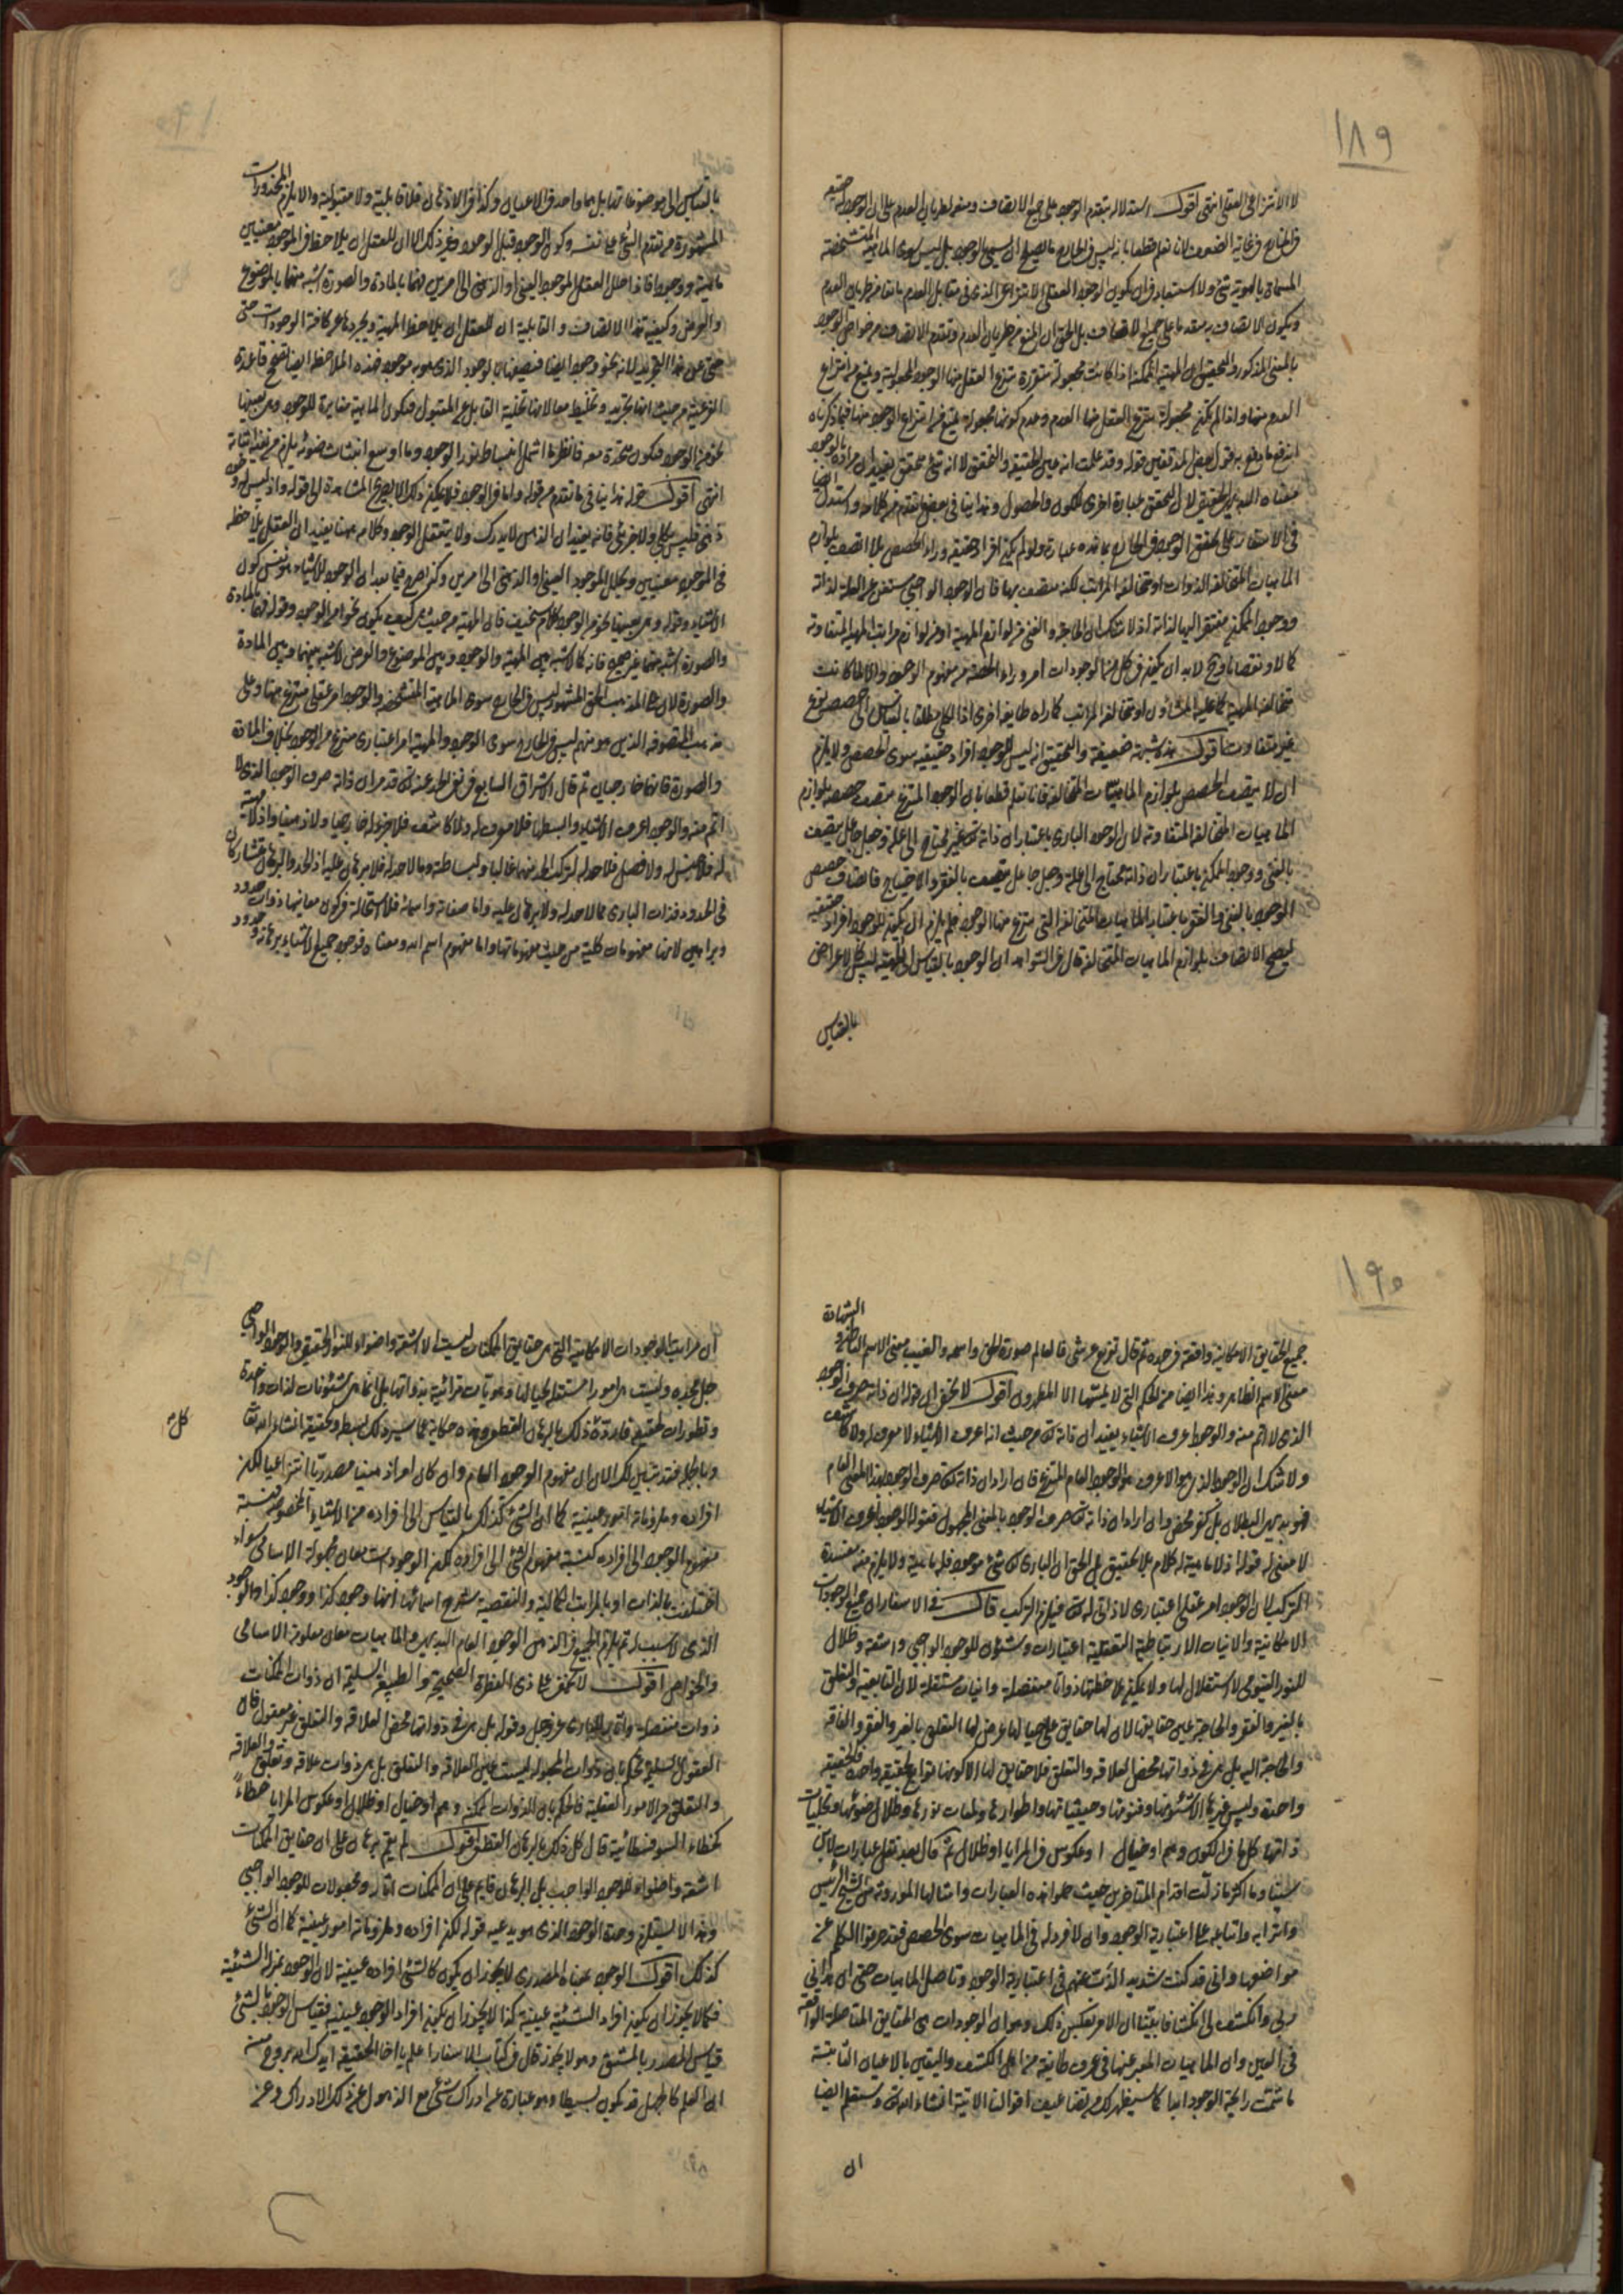 ١٨٩
لا الانتزاعى العقلى انتهى اقول استدلاله بتقدم الوجود على جميع الاتصافات ومنعه لطريان العدم على ان الوجود حقيقة
فى الخارج فى غاية الضعف لانا نعلم قطعا بانه ليس فى الخارج ما يصلح ان يسمى بالوجود بل ليس سوى الماهية المتشخصة
المسماة بالهوية شئ ولا استبعاد فى ان يكون الوجود العقلى الانتزاعى الذى فى مقابل العدم مانعا من طريان العدم
ويكون الاتصاف به مقدما على جميع الاتصافات بل الحق ان المنع من طريان العدم وتقدم الاتصاف من خواص الوجود
بالمعنى المذكور والتحقيق ان المهية الممكنة اذا كانت مجعولة متقررة ينتزع العقل منها الوجود والمجعولية ويمنع من انتزاع
العدم منها واذا لم يكن مجعولة ينتزع العقل منها العدم وعدم كونها مجعولة يمنع من انتزاع الوجود منها فبما ذكرناه
اندفع ما وقع به قول بعض المدققين قوله وقد علمت انه عين الحقيقة والتحقق لا انه شئ متحقق يفيد ان مراده بالوجود
معناه المصدرى الحقيقى لان التحقق عبارة اخرى للكون والحصول وهذا ينافى بعض ما تقدم من كلامه واستدل ايضا
فى الاسفار على تحقق الوجود فى الخارج بما هذه عبارة ولو لم يكن افراد حقيقة وراء الحصص لما اتصف بلوازم
الماهيات المتخالفة الذوات او متخالفة المراتب لكنه متصف بها فان الوجود الواجبى مستغن عن العلة لذاته
ووجود الممكن مفتقر اليها لذاته اذ لا شك ان الحاجة والغنى من لوازم المهية او من لوازم مراتب المهية المتفاوتة
كمالا ونقصانا وح لابد ان يكون فى كل من الموجودات امر وراء الحصة من مفهوم الوجود والا لما كانت
متخالفة المهية كما عليه المشاؤون او متخالفة المراتب كما راه طايفة اخرى اذ الكلى مطلقا بالقياس الى حصصه نوع
غير متفاوت اقول هذه شبهة ضعيفة والتحقيق انه ليس للوجود افراد حقيقية سوى الحصص ولا يلزم
ان لا يتصف الحصص بلوازم الماهيات المتخالفة فانا نعلم قطعا بان الوجود المنتزع متصف حصصه بلوازم
الماهيات المتخالفة المتفاوتة لان الوجود البارى باعتبار ان ذاته تعالى غير محتاج الى العلة وجعل جاعل يتصف
بالغنى ووجود الممكن باعتبار ان ذاته محتاج الى العلة وجعل جاعل يتصف بالفقر والاحتياج فاتصاف حصص
الوجود بالغنى والفقر باعتبار الماهيات المتخالفة التى ينتزع منها الوجود فلم يلزم ان يكون للوجود افراد حقيقية
ليصح الاتصاف بلوازم الماهيات المتخالفة قال فى الشواهد ان الوجود بالقياس الى المهية ليس كالاعراض
بالقياس
بالقياس الى موضوعاتها بل هما واحد فى الاعيان وكذا فى الاذهان فلا قابلية ولا مقبولية والا يلزم المحذورات
المشهورة من تقدم الشئ على نفسه وكون الوجود قبل الوجود وغير ذلك الا ان للعقل ان يلاحظ فى الموجود معنيين
ماهية ووجودا فاذا حلل العقل الموجود العينى او الذهنى الى امرين فهما بالمادة والصورة اشبه منهما بالموضوع
والعرض وكيفية هذا الاتصاف والقابلية ان للعقل ان يلاحظ المهية ويجردها عن كافة الوجودات حتى
حتى عن هذا التجريد لانه نحو وجود ايضا فنصفها بالوجود الذى هو به موجود فهذه الملاحظة ايضا تصحح قاعدة
الفرعية من حيث انها تجريد وتخليط معا لانها تخلية القابل عن المقبول فتكون الماهية مغايرة للوجود وهى بعينها
نحو من الوجود فتكون متحدة معه فانظر ما اشمل انبساط نور الوجود وما اوسع انبثاث ضوئه يلزم من نفيه اثباته
انتهى اقول قوله هذا ينافى ما تقدم من قوله واما فى الوجود فلا يمكن ذلك الا بصريح المشاهدة الى قوله واذ ليس له وجود
ذهنى فليس بكلى ولا جزئى فانه يفيد ان الذهن لا يدرك ولا يتعقل الوجود وكلامه ههنا يفيد ان العقل يلاحظه
فى الموجود معنيين ويحلل الموجود العينى او الذهنى الى امرين وكذا صرح فيما بعد ان الوجود للاشياء هو نفس كون
الاشياء وقوله وهى بعينها نحو من الوجود كلام سخيف فان المهية من حيث هى كيف يكون نحوا من الوجود وقوله فهما بالمادة
والصورة اشبه منهما غير صحيح فانه كما لا شبه بين المهية والوجود وبين الموضوع والعرض لا شبه بينهما وبين المادة
والصورة لان على المذهب الحق المشهور ليس فى الخارج سوى الماهية المتشخصة والوجود امر عقلى منتزع منها وعلى
مذهب المتصوفة الذين هو منهم ليس فى الخارج سوى الوجود والمهية امر اعتبارى منتزع من الوجود بخلاف المادة
والصورة فانهما خارجيان ثم قال الاشراق السابع فى نفى الحد عنه تعالى قد مر ان ذاته صرف الوجود الذى لا
اتم منه والوجود اعرف الاشياء وابسطها فلا معرف له ولا كاشف فلا جزء له خارجيا ولا ذهنيا واذ لا مهية
له فلا جنس له ولا فصل فلا حد له لتركب الحد منهما غالبا ولبساطته وما لا حد له فلا برهان عليه اذ الحد والبرهان متشاركان
فى الحدود فذات البارى مما لا حد له ولا برهان عليه واما صفاته واسمائه فلا استحالة فى كون معانيها ذوات حدود
وبراهين لانها مفهومات كلية من حيث مفهوماتها واما مفهوم اسم الله ومعناه فوجود جميع الاشياء برهانه وحدود
١٩٠
الشهادة
جميع الحقايق الامكانية واقعة فى حده ثم قال تفريع عرشى فالعالم صورة الحق واسمه والغيب معنى الاسم الباطن و
معنى الاسم الظاهر وهذا ايضا من الحكم التى لا يمسها الا المطهرون اقول لا يخفى ان قوله ان ذاته صرف الوجود
الذى لا اتم منه والوجود اعرف الاشياء يفيد ان ذاته تعالى من حيث انه اعرف الاشياء لا معرف له ولا كاشف
ولا شك ان الوجود الذى هو الاعرف هو الوجود العام المنتزع فان اراد ان ذاته تعالى صرف الوجود بهذا المعنى العام
فهو بديهى البطلان بل كفر محض وان اراد ان ذاته تعالى صرف الوجود بالمعنى المجهول فقوله الوجود اعرف الاشياء
لا معنى له قوله اذ لا ماهية له كلام بلا تحقيق بل الحق ان البارى تعالى شئ موجود فله ماهية ولا يلزم منه مفسدة
التركيب لان الوجود امر عقلى اعتبارى لا ذاتى له تعالى فيلزم التركب قال فى الاسفار ان جميع الوجودات
الامكانية والانيات الارتباطية التعلقية اعتبارات وشئون للوجود الواجبى واشعة وظلال
للنور القيومى لا استقلال لها ولا يمكن ملاحظتها ذواتا منفصلة وانيات مستقلة لان التابعية والتعلق
بالغير والفقر والحاجة عين حقايقها لا ان لها حقايق على حيالها عرض لها التعلق بالغير والفقر والفاقة
والحاجة اليه بل هى فى ذواتها محض العلاقة والتعلق فلا حقايق لها الا كونها توابع لحقيقة واحدة فالحقيقة
واحدة وليس غيرها الا شئونها وفنونها وحيثياتها واطوارها ولمعات نورها وظلال ضوئها وتجليات
ذاتها كل ما فى الكون وهم او خيال ا وعكوس فى المرايا او ظلال ثم قال بعد نقل عبارات لابن
سينا وما اكثر ما زلت اقدام المتاخرين حيث حملوا هذه العبارات وامثالها الموروثة من الشيخ الرئيس
واترابه واتباعه على اعتبارية الوجود وان لا فرد له فى الماهيات سوى الحصص فقد حرفوا الكلم عن
مواضعها وانى قد كنت شديد الذب عنهم فى اعتبارية الوجود وتاصل الماهيات حتى ان هدانى
ربى وانكشف لى انكشافا بينا ان الامر بعكس ذلك وهو ان الوجودات هى الحقايق المتاصلة الواقعة
فى العين وان الماهيات المعبر عنها فى عرف طايفة من اهل الكشف واليقين بالاعيان الثابتة
ما شمت رايحة الوجود ابدا كما سيظهر لك من تضاعيف اقوالنا الاتية انشاء الله تعالى وستعلم ايضا
ان
ان مراتب الوجودات الامكانية التى هى حقايق الممكنات ليست الا اشعة واضواء للنور الحقيقى والوجود الواجبى
جل مجده وليست هى امورا مستقلة بحيالها وهويات مترائية بذواتها بل انما هى شئونات لذات واحدة
وتطورات لحقيقة فاردة كل ذلك بالبرهان القطعى وهذه حكاية عما سيرد لك بسطه وتحقيقه انشاء الله تعالى
وبالجملة فقد تبين لك الان ان مفهوم الوجود العام وان كان امرا ذهنيا مصدريا انتزاعيا لكن
افراده وملزوماته امور عينية كما ان الشئ كذلك بالقياس الى افراده من الاشياء المخصوصة فنسبة
مفهوم الوجود الى افراده كنسبة مفهوم الشئ الى افراده لكن الوجودات معان مجهولة الاسامى سواء
اختلفت بالذات او بالمراتب الكمالية والنقصية شرح اسمائها انها وجود كذا ووجود كذا والوجود
الذى لا سبب له ثم يلزم الجميع فى الذهن الوجود العام البديهى والماهيات معان معلومة الاسامى
والخواص اقول لا يخفى على ذى الفطرة الصحيحة والطبيعة السليمة ان ذوات الممكنات
ذوات منفصلة واثار للبارى عز وجل وقوله بل هى فى ذواتها محض العلاقة والتعلق غير معقول فان
العقول السليمة تحكم بان ذوات المجعولة ليست عين العلاقة والتعلق بل هى ذوات علاقة وتعلق والعلاقة
والتعلق من الامور العقلية فالحكم بان الذوات الممكنة وهم او خيال او ظلال او عكوس المرايا خطاء
كخطاء السوفسطائية قال كل ذلك بالبرهان القطعى اقول لم يقم برهان على ان حقايق الممكنات
اشعة واضواء للوجود الواجب بل البرهان قايم على ان الممكنات اثار ومجعولات للوجود الواجبى
وهذا لا يستلزم وحدة الوجود الذى هو يدعيه قوله لكن افراده وملزوماته امور عينية كما ان الشئ
كذلك اقول الوجود بمعناه المصدرى لا يجوز ان يكون كالشئ افراده عينية لان الوجود بمنزلة الشيئية
فكما لا يجوز ان يكون افراد الشيئية عينية كذا لا يجوز ان يكون افراد الوجود عينية فقياس الوجود بالشئ
قياس المصدر بالمشتق وهو لا يجوز قال فى كتاب الاسفار اعلم يا اخا الحقيقة ايدك الله بروح منه
ان العلم كالجهل قد يكون بسيطا وهو عبارة عن ادراك شئ مع الذهول عن ذلك الادراك وعن